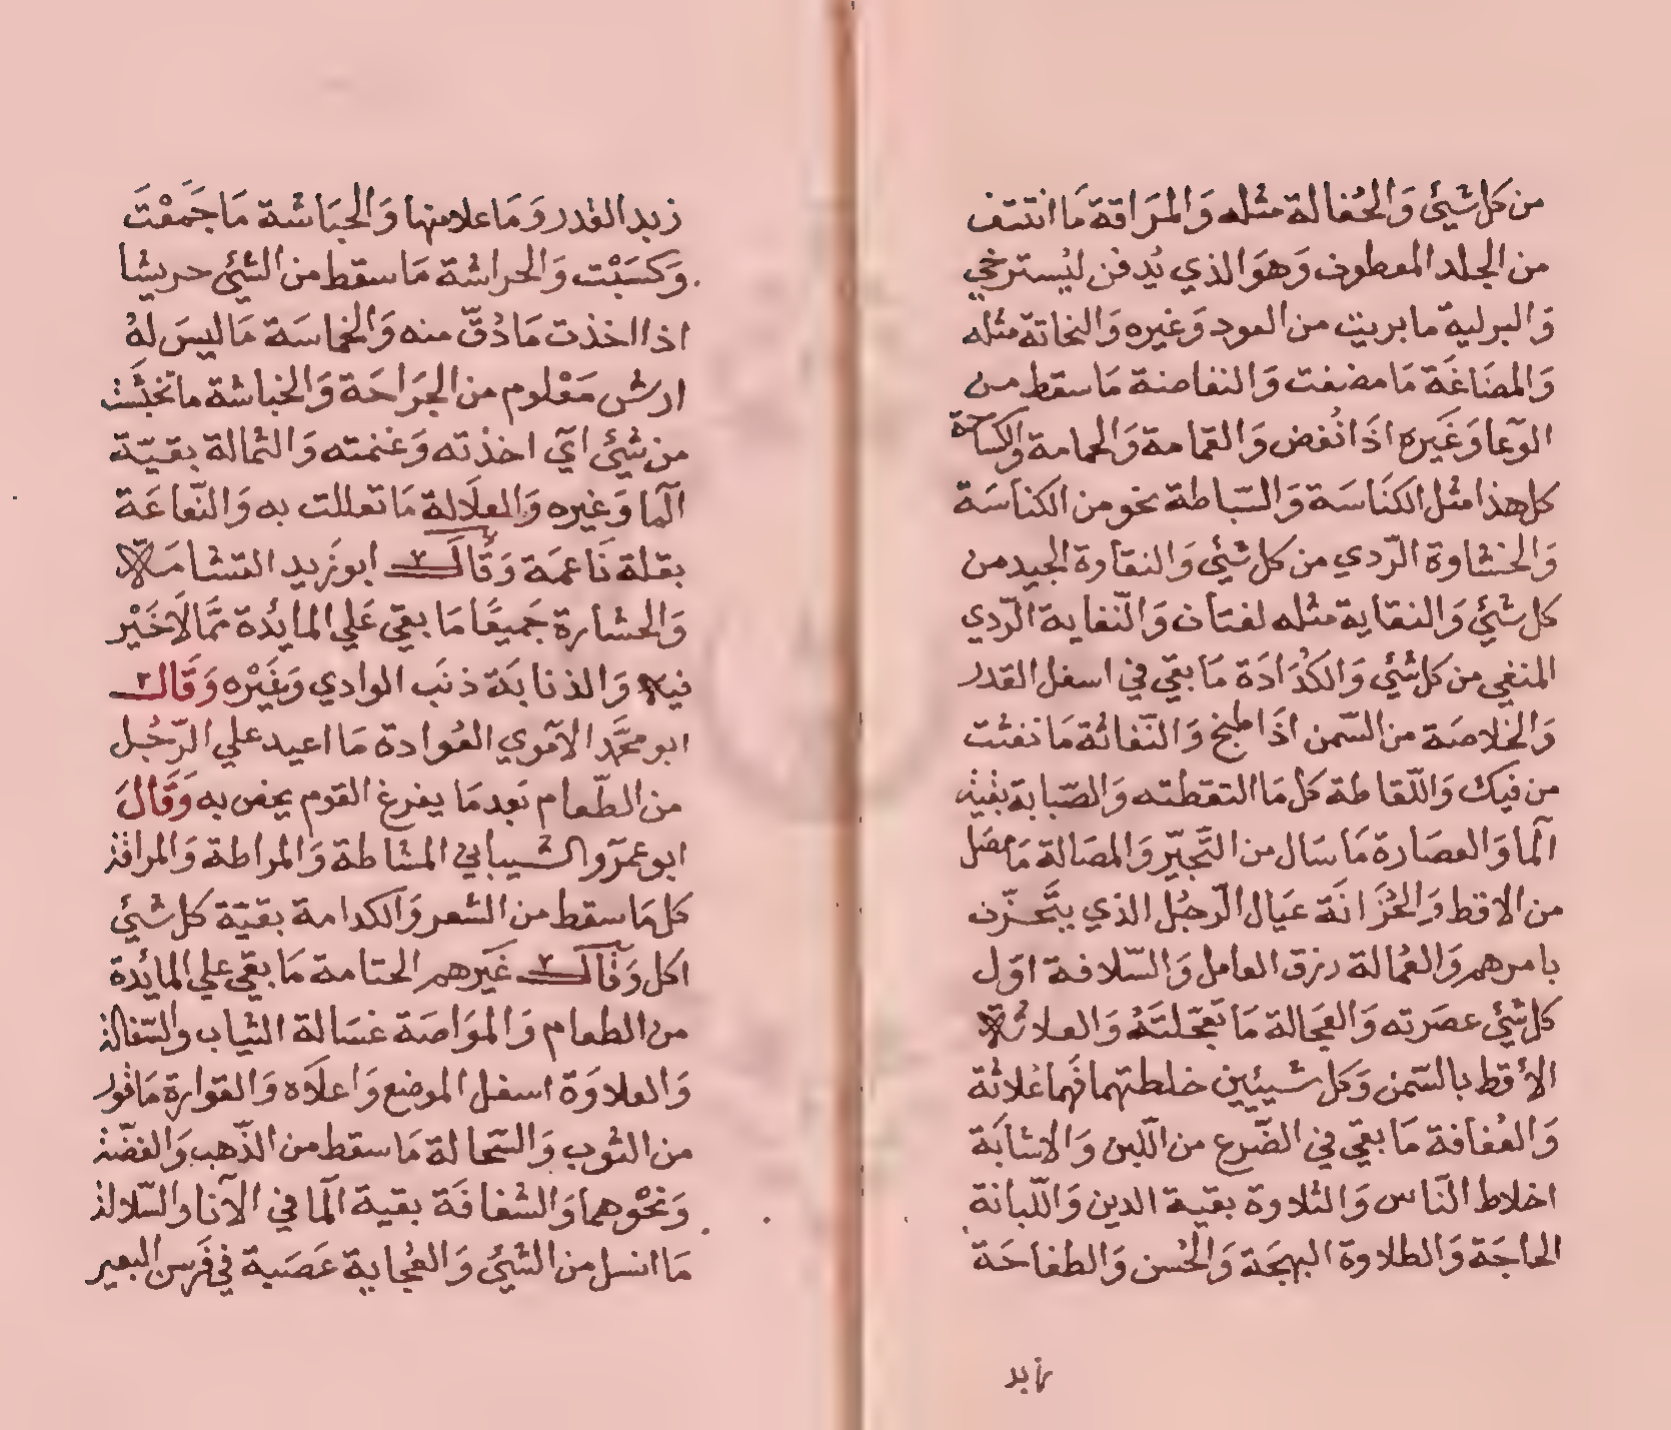 من كل شيئ وَالحُفالة مثله وَالمرَاقة مَا انتتف
من الجلد المعطون وَهوَ الذي يُدفن ليُسترخي
وَالبرلية ما بريت من العود وَغيره وَالنحاتة مثله
وَالمضَاغَة مَا مضغت وَالنفاضة مَا سقط من
الوّعا وَغَيره اذَا نُفض وَالقمامة وَالحمامة وَالكساحة
كل هذا مثل الكنَاسَة وَالسّباطة نحو من الكناسَة
وَالخشاوة الرّدي من كل شيئ وَالنقاوة الجيد من
كل شيئ وَالنقاية مثله لغتان وَالنّفاية الرّدي
المنفي من كل شيئ وَالكدَادَة مَا بقي في اسفل القدر
وَالخلاصَة من السّمن اذَا طبخ وَالنّفاثة مَا نفثت
من فيك وَاللّقاطة كل مَا التقطته وَالصّبابة بقية
المآ وَالعصَارة مَا سَال من التّجيّر وَالمصَالة مَا مصَل
من الاقط وَالحُزَانَة عيَال الرّجُل الذي يتَّحزّن
بامرهم وَالعُمالة رزق العامل وَالسّلافة اوّل
كل شيئ عصَرته وَالعجَالة مَا تعجّلتَهُ وَالعلاثة
الأقط بالسّمن وَكل شيئين خلطتهما فَهما عُلاثة
وَالعُفافة مَا بقي في الضّرع من اللّبن وَالاشابَة
اخلاط النّاس وَالتلاوة بقية الدين وَاللّبانة
الحاجَة وَالطلاوة البهجَة وَالحُسن وَالطفاحَة
زبد
زبد القدر وَمَا علا منها وَالحبَاشة مَا جَمعْتَ
وَكسَبْت وَالحراشة مَا سقط من الشيئ حريشا
اذا اخذت مَا دُقّ منه وَالخماسَة مَا ليسَ لهُ
ارش مَعْلوم من الجرَاحَة وَالخباشة ما تخبّشت
من شيئ اَي اخذته وَغنمته وَالثمالة بقيّة
المآ وَغيره وَالعلَالة مَا تعللت به وَالنّعاعَة
بقلة نَاعمَة وَقَال ابو زَيد القشامة
وَالحشارة جَميعًا مَا بقي عَلي المايُدة ممَّا لَا خَيْر
فيه وَالذنابَة ذنَب الوادي وَغَيْره وَقَال
ابو محمَّد الاموي العُوادة مَا اعيد علي الرّجُل
من الطّعام بَعد مَا يفرغ القوم يخص به وَقَالَ
ابو عمرو الشيباني المشاطة وَالمراطة وَالمراقة
كل مَا سقط من الشعر وَالكدامة بقيّة كل شيئ
اكل وَقَال غَيَرهم الحتامة مَا بقي علي المائدة
من الطعام وَالموَاصَة غسَالة الثياب وَالسّفالة
وَالعلاوَة اسفل الموضع وَاعلَاه وَالقوارة مَا قور
من الثوب وَالسّحالة مَا سقط من الذّهب وَالفضّة
وَنحْوهما وَالشفافَة بقية المآ في الآنا وَالسّلالة
مَا انسل من الشيئ وَالعُجاية عَصَبة في فَرسن البعير